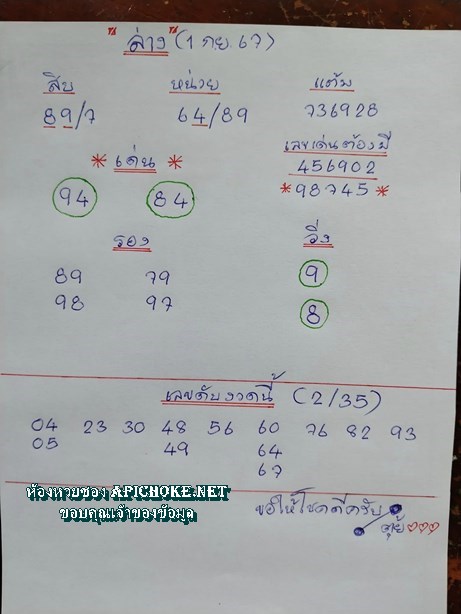 "ล่าง" (1 กย. 67)
สิบ หน่วย แต้ม
89/7 64/89 736928
* เด่น * เลขเด่นต้องมี
456902
94 84 *98745*
รอง วิ่ง
89 79 9
98 97 8
เลขดับงวดนี้ (2/35)
04 23 30 48 56 60 76 82 93
05 49 64
67
ห้องหวยซอง APICHOKE.NET
ขอบคุณเจ้าของข้อมูล
ขอให้โชคดีครับ
ตุ้ย ♡♡♡